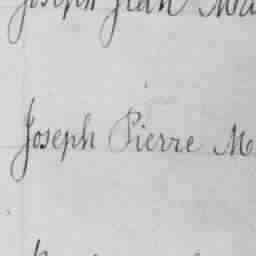 Joseph Jean Ma
Joseph Pierre M